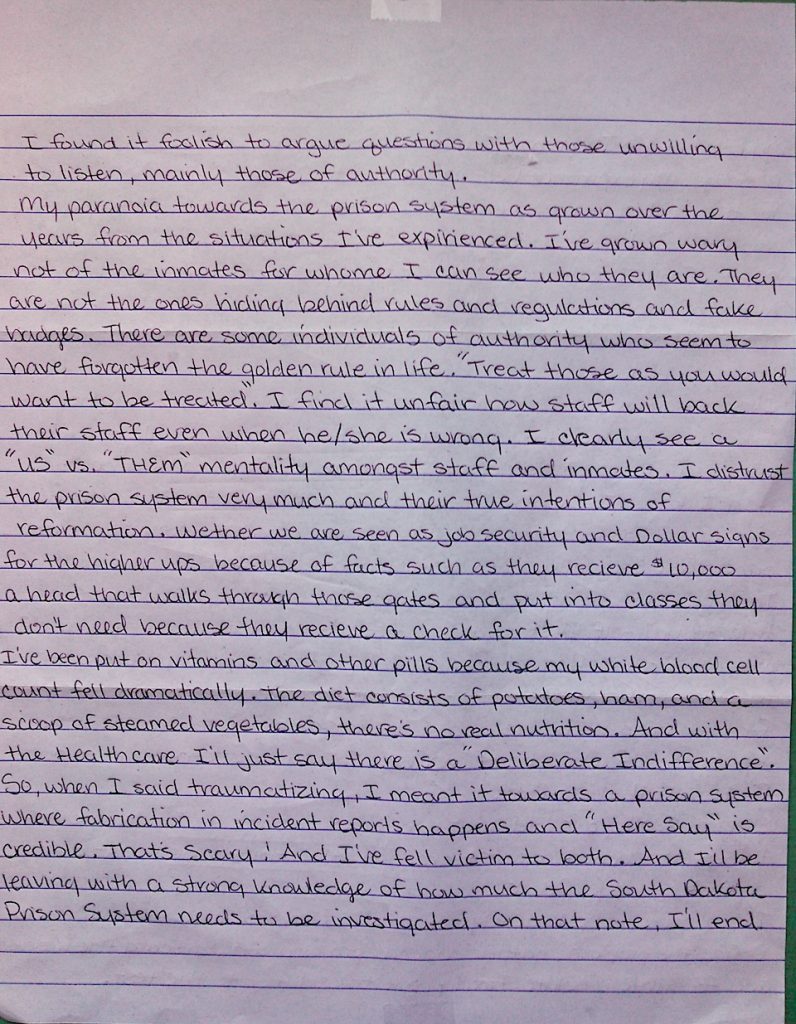 I found it foolish to argue questions with those unwilling
to listen, mainly those of authority.
My paranoia towards the prison system as grown over the
years from the situations I've expirienced. I've grown wary
not of the inmates for whome I can see who they are. They
are not the ones hiding behind rules and regulations and fake
badges. There are some individuals of authority who seem to
have forgotten the golden rule in life. "Treat those as you would
want to be treated". I find it unfair how staff will back
their staff even when he/she is wrong. I clearly see a
"US" vs. "THEM" mentality amongst staff and inmates. I distrust
the prison system very much and their true intentions of
reformation. Wether we are seen as job security and Dollar signs
for the higher ups because of facts such as they recieve $10,000
a head that walks through those gates and put into classes they
don't need because they recieve a check for it.
I've been put on vitamins and other pills because my white blood cell
count fell dramatically. The diet consists of potatoes, ham, and a
scoop of steamed vegetables, there's no real nutrition. And with
the Healthcare I'll just say there is a "Deliberate Indifference".
So, when I said traumatizing, I meant it towards a prison system
where fabrication in incident reports happens and "Here Say" is
credible. That's Scary! And I've fell victim to both. And I'll be
leaving with a strong knowledge of how much the South Dakota
Prison System needs to be investigated. On that note, I'll end.